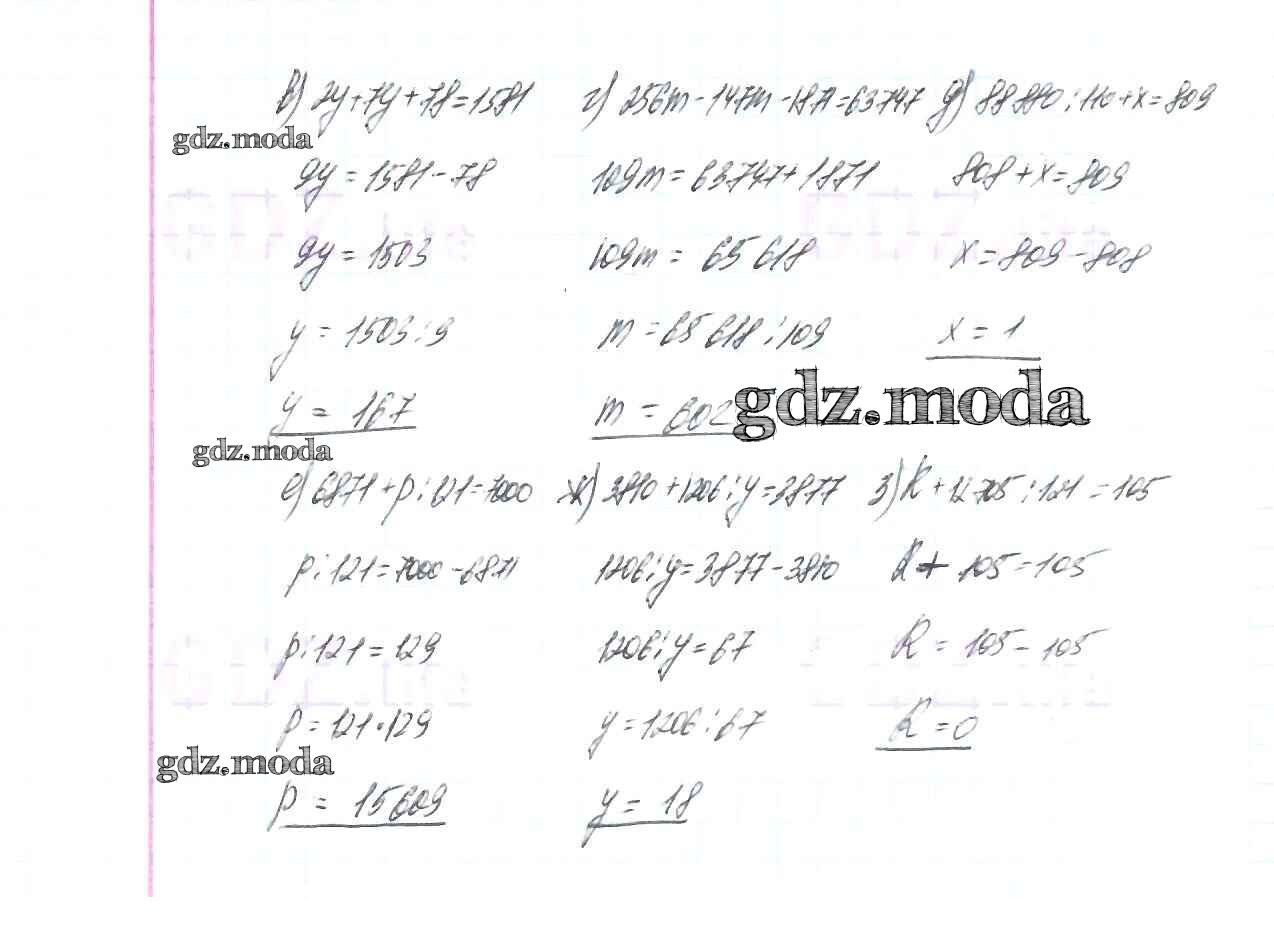 в) 2y+7y+78=1581 г) 256m-147m-1871=63747 д) 88880:110+x=809
gdz.moda
9y=1581-78 109m=63747+1871 808+x=809
9y=1503 109m=65618 x=809-808
y=1503:9 m=65618:109 x=1
y=167 m=602
gdz.moda
gdz.moda
е) 6871+p:121=7000 ж) 3810+1206:y=3877 з) k+12705:121=105
p:121=7000-6871 1206:y=3877-3810 k+105=105
p:121=129 1206:y=67 k=105-105
p=121·129 y=1206:67 k=0
gdz.moda
p=15609 y=18